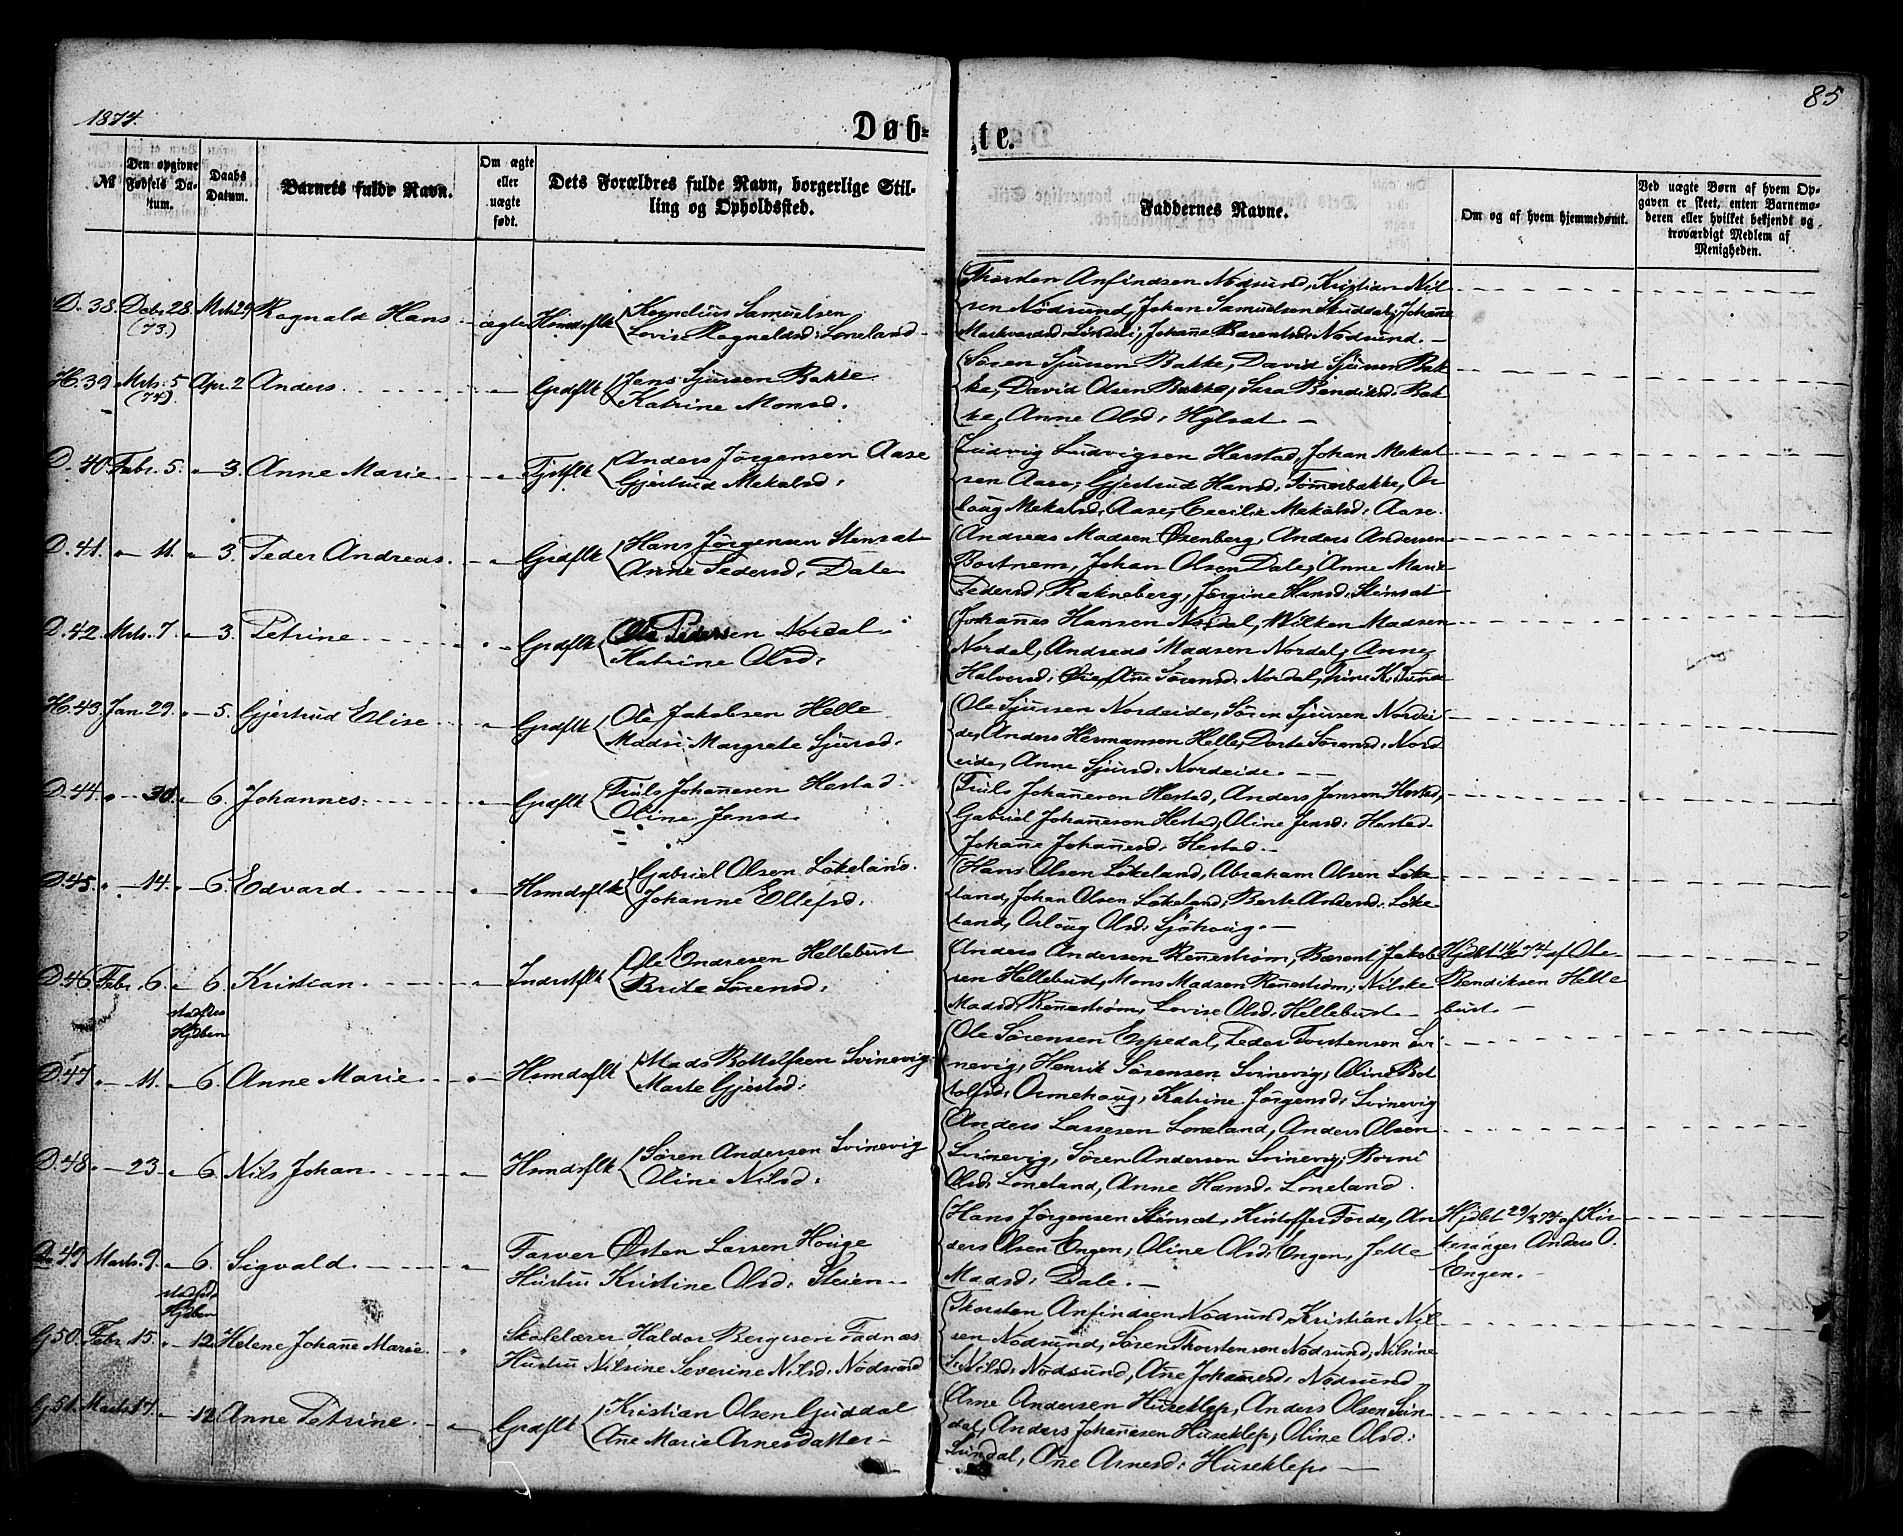 1874.
85
Døb-
te.
№
Den opgivne Fødsels Datum.
Daabs Datum.
Barnets fulde Navn.
Om ægte eller uægte født.
Dets Forældres fulde Navn, borgerlige Stilling og Opholdssted.
Faddernes Navne.
Om og af hvem hjemmedøbt.
Ved uægte Børn af hvem Opgaven er skeet, enten Barnemoderen eller hvilket bekjendt og troværdigt Medlem af Menigheden.
D. 38. Dcbr. 28. (73.) Mrts 29 Ragnald Hans ægte Hsmdsflk Kornelius Samuelsen
Lovise Ragnaldsd: Loneland
Thorsten Anfindsen Nødsund, Kristian Nil-
sen Nødsund, Johan Samuelsen Skiddal, Johanne
Markvardsd. Lindeli, Johanne Barentsd: Nødsund.
H. 39 Mrts. 5 (74). Apr. 2 Anders Grdflk Jens Sjursen Bakke
Katrine Monsd.
Søren Sjursen Bakke, David Sjursen Bak-
ke, David Olsen Bakke, Sara Bendiksd: Bak-
ke, Anne Olsd:
D. 40. Febr. 5. " 3. Anne Marie " Tjstflk Anders Jørgensen Aase
Gjertrud Mekalsd:
Ludvig Ludvigsen Harstad, Johan Mekal-
sen Aase, Gjertrud Hansd: Tømerbakke, Or-
loug Mekalsd: Aase, Cecilie Mekalsd: Aase.
D. 41. " 11. " 3. Peder Andreas. " Grdflk Hans Jørgensen Stensæt
Anne Pedersd: Dale
Andreas Madsen Øxenberg, Anders Andersen
Bortnem, Johan Olsen Dale, Anne Marie
Pedersd: Rakneberg, Jørgine Hansd: Stensæt
D. 42 Mrts. 7. " 3. Petrine " Grdflk Ole Pedersen Nordal
Katrine Olsd:
Johannes Hansen Nordal, Wilken Madsen
Nordal, Andreas Madsen Nordal, Anne
Halvorsd: Øie, Ane Sørensd: Nordal, Trine
H. 43. Jan. 29. " 5. Gjertrud Elise " Grdflk Ole Jakobsen Helle
Madsi Margrete Sjursd:
Ole Sjursen Nordeide, Søren Sjursen Nordei-
de, Anders Hermansen Helle, Dorte Sørensd: Nord-
eide, Anne Sjursd: Nordeide.
D. 44. " 30. " 6. Johannes. " Grdflk Truls Johannesen Hestad
Oline Jensd.
Truls Johannesen Hestad, Anders Jensen Hestad,
Gabriel Johannesen Hestad, Oline Jensd: Hestad
Johanne Johannesd: Hestad.
D. 45. " 14. " 6. Edvard " Hsmdsflk Gabriel Olsen Løkeland.
Johanne Ellefsd:
Hans Olsen Løkeland, Abraham Olsen Løke-
land, Johan Olsen Løkeland, Berte Andersd: Løke-
land, Orloug Olsd: Sjøhoug.
D. 46 Febr. 6. " 6. Kristian " Indrstflk Ole Endresen Hellebust
Brite Sørensd:
stadfæs
Hjdben
Anders Andersen Rennestrøm, Barent Jakob-
sen Hellebust, Mons Madsen Rennestrøm, Nilske
Madsd: Rennestrøm, Lovise Olsd: Hellebust
Hjdbt af Ole
Bendiksen Helle-
bust.
D. 47 " 11. " 6. Anne Marie " Hsmdsflk Mads Bottolfsen Svinevig.
Marte Gjertsd:
Ole Sørensen Espedal, Peder Torstensen Svi-
nevig, Henrik Sørensen Svinevig, Oline Bot-
tolfsd: Ormehoug, Katrine Jørgensd: Svinevig
D. 48. " 23. " 6. Nils Johan " Hsmdsflk Søren Andersen Svinevig
Oline Nilsd:
Anders Lassesen Loneland, Anders Olsen
Svinevig, Søren Andersen Svinevig, Borni
Olsd: Loneland, Anne Hansd: Loneland.
D. 49 Marts. 9. " 6. Sigvald. " Farver Østen Larsen Houge
Hustru Kristine Olsd: Steien.
stadfd.
Hjdben
Hans Jørgensen Stensæt, Kristoffer Førde, An-
ders Olsen Engen, Oline Olsd: Engen, Jette
Madsd: Dale.
Hjdbt 29/3 74 af Kir-
kesanger Anders O.
Engen.
G. 50. Febr. 15. " 12. Helene Johanne Marie. " Skolelærer Haldor Bergesen Fadnæs
Hustru Nilsine Severine Nilsd: Nødsund
Thorsten Anfindsen Nødsund, Kristian Nil-
sen Nødsund, Søren Thorstensen Nødsund, Nilsine
S. Nilsd: Nødsund, Ane Johannesd: Nødsund
G. 51. Marts. 17. " 12 Anne Petrine " Grdflk Kristian Olsen Guddal
Ane Marie Arnesdatter
Arne Andersen Huseklep, Anders Olsen Sørn-
dal, Anders Johannesen Huseklep, Oline Olsd:
Sundal, Ane Arnesd: Huseklep.